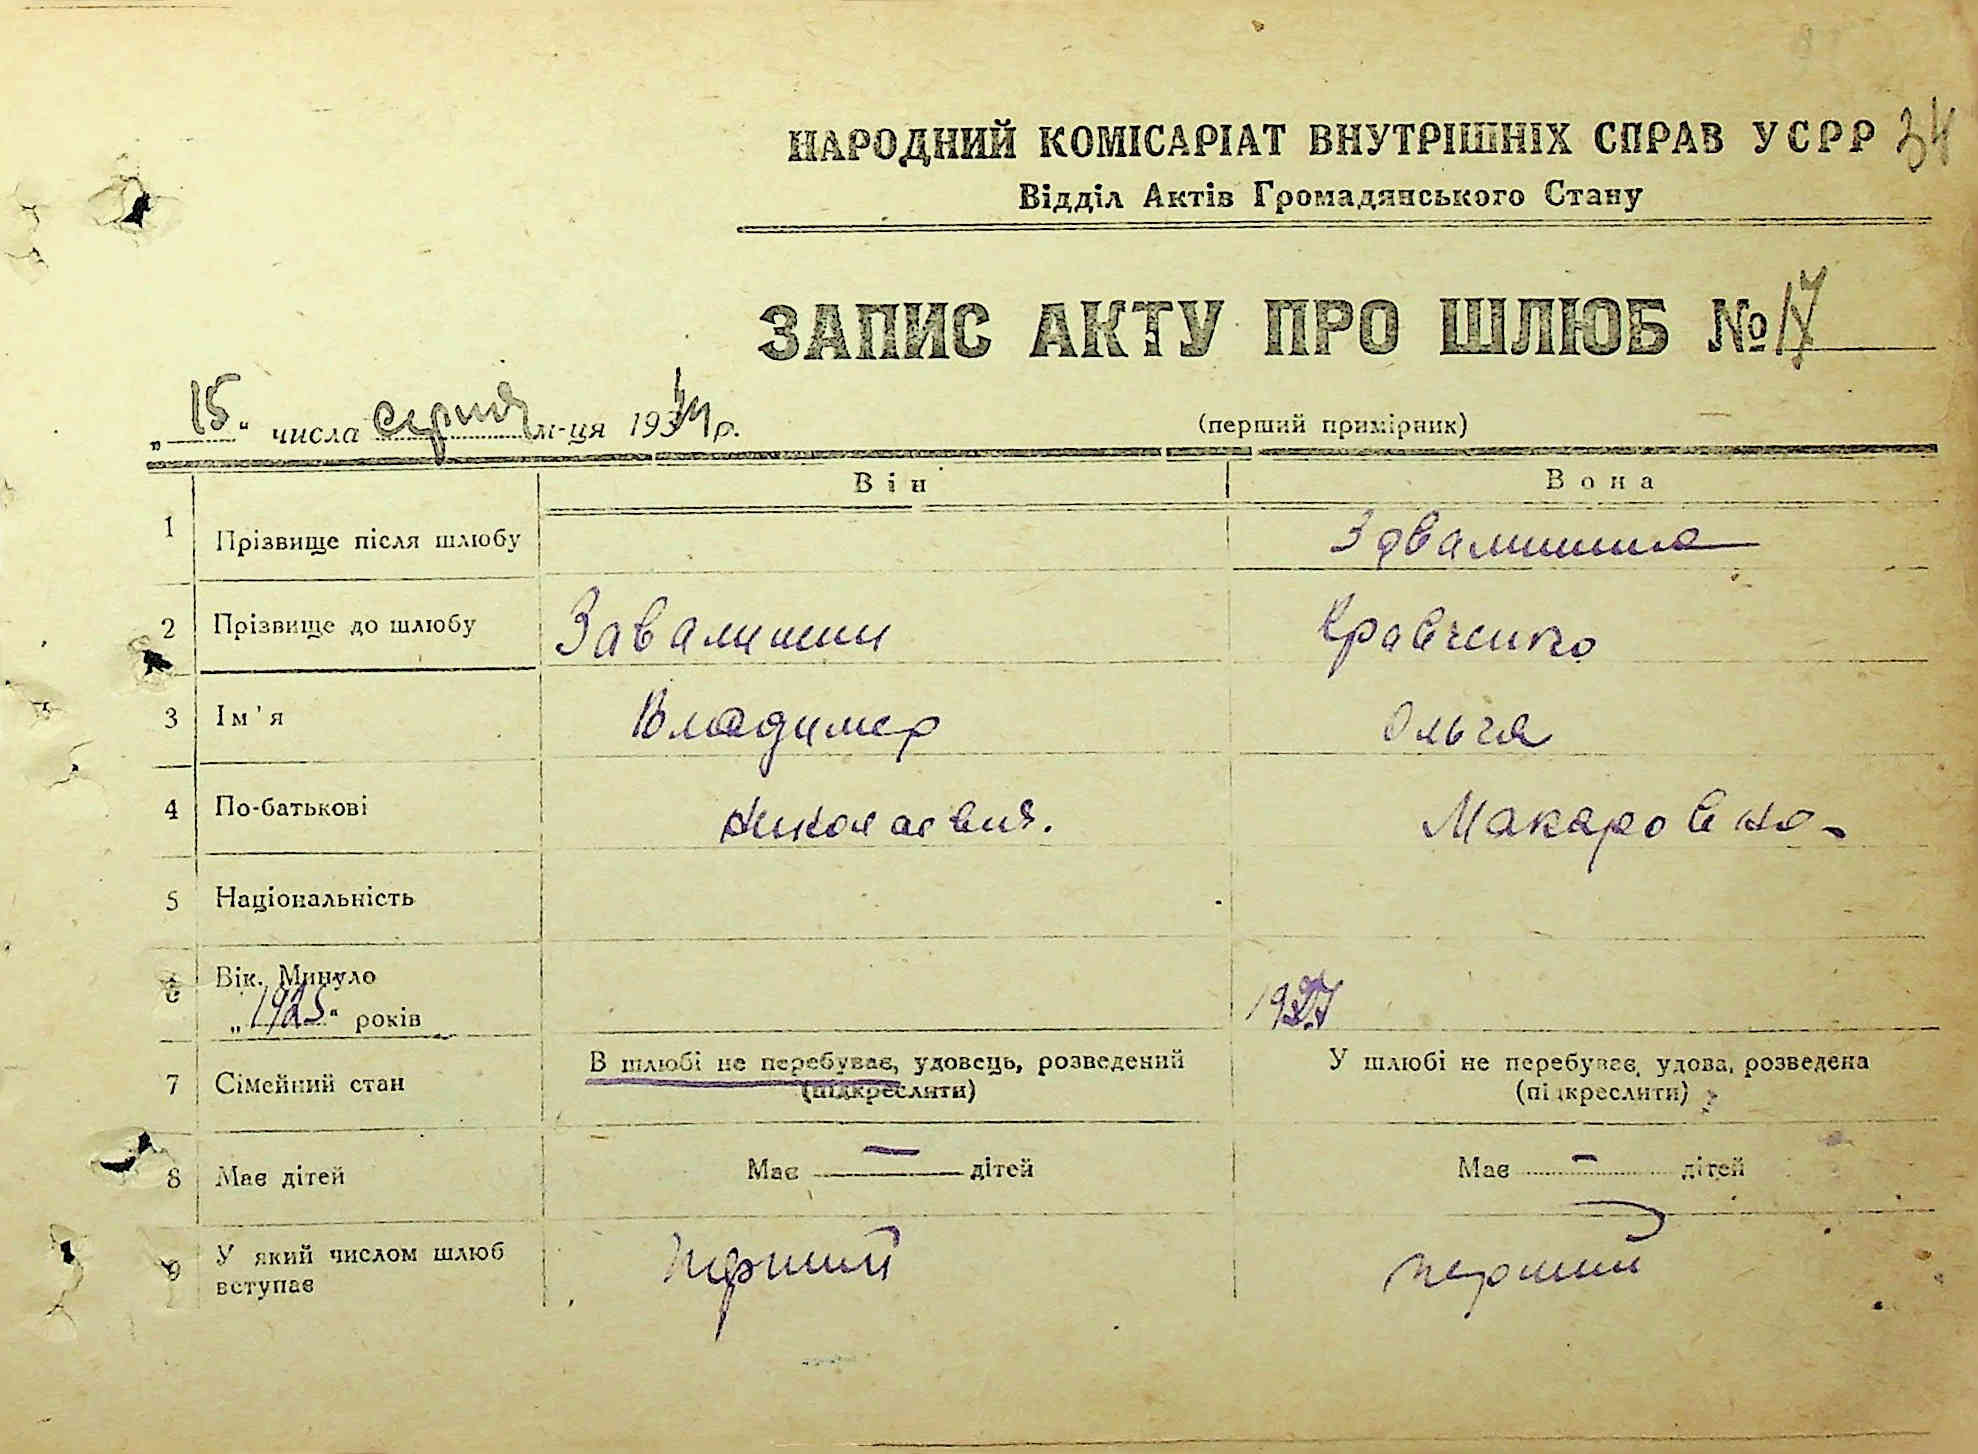 34
НАРОДНИЙ КОМІСАРІАТ ВНУТРІШНІХ СПРАВ УСРР
Відділ Актів Громадянського Стану
ЗАПИС АКТУ ПРО ШЛЮБ № 17
„15“ числа серпня м-ця 1944 р.
(перший примірник)
Він Вона
1 Прізвище після шлюбу Здвалишина
2 Прізвище до шлюбу Завалишин Кравченко
3 Ім'я Владимер Ольга
4 По-батькові Николаевич. Макаровна
5 Національність
6 Вік. Минуло
„1925“ років 1927
7 Сімейний стан В шлюбі не перебуває, удовець, розведений (підкреслити) У шлюбі не перебуває, удова, розведена (підкреслити)
8 Має дітей Має — дітей Має - дітей
9 У який числом шлюб вступає перший перший